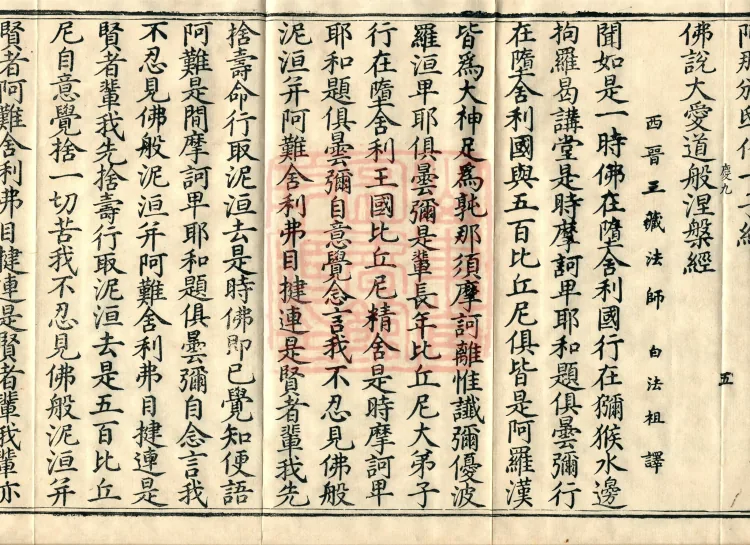 佛說大愛道般涅槃經
慶九
五
西晉三藏法師 白法祖譯
聞如是一時佛在墮舍利國行在獼猴水邊
拘羅曷講堂是時摩訶卑耶和題俱曇彌行
在墮舍利國與五百比丘尼俱皆是阿羅漢
皆為大神足為那須摩訶離惟讖彌優波
羅洹卑耶俱曇彌是輩長年比丘尼大弟子
行在墮舍利王國比丘尼精舍是時摩訶卑
耶和題俱曇彌自意覺念言我不忍見佛般
泥洹并阿難舍利弗目揵連是賢者輩我先
捨壽命行取泥洹去是時佛即已覺知便語
阿難是間摩訶卑耶和題俱曇彌自念言我
不忍見佛般泥洹并阿難舍利弗目揵連是
賢者輩我先捨壽行取泥洹去是五百比丘
尼自意覺捨一切苦我不忍見佛般泥洹并
賢者阿難舍利弗目揵連是賢者輩我輩亦